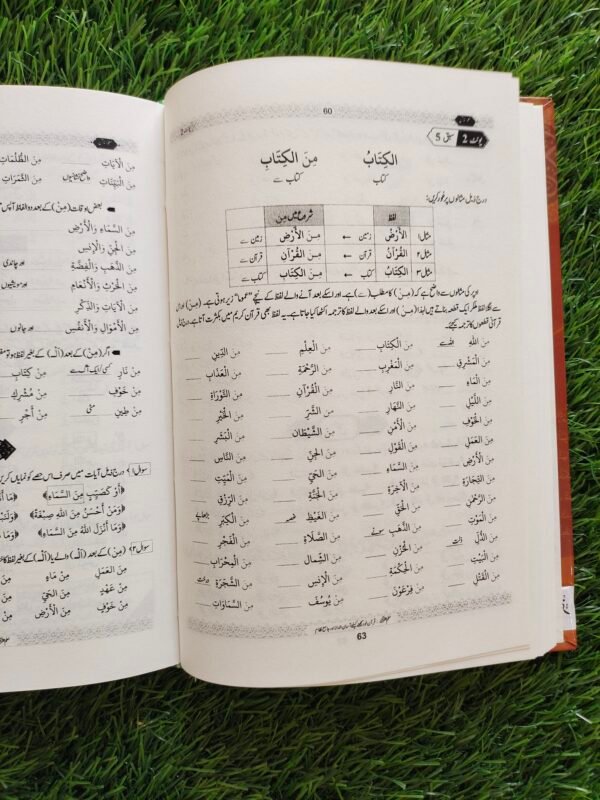 60
پارٹ 2 سبق 5
الكِتَابُ مِنَ الكِتَابِ
کتاب کتاب سے
درج ذیل مثالوں پر غور کریں:
لفظ شروع میں مِنْ
مثال ۱ الأَرْضُ زمین ← مِنَ الأَرْضِ زمین سے
مثال ۲ القُرْآنُ قرآن ← مِنَ القُرْآنِ قرآن سے
مثال ۳ الكِتَابُ کتاب ← مِنَ الكِتَابِ کتاب سے
اوپر کی مثالوں سے واضح ہے کہ (مِنْ) کا مطلب (سے) ہے۔ اور اسکے بعد آنے والے لفظ کے نیچے "عموما" زیر ہوتی ہے۔ (مِنْ) اور اس
سے اگلا لفظ ملکر ایک قطعہ بناتے ہیں لہٰذا (مِنْ) اور اسکے بعد والے لفظ کا ترجمہ اکٹھا کیا جاتا ہے۔ یہ لفظ بھی قرآن کریم میں بکثرت آتا ہے۔ درج ذیل
قرآنی قطعوں کا ترجمہ کیجئے۔
مِنَ اللّٰهِ اللہ سے مِنَ الْكِتَابِ مِنَ الْعِلْمِ مِنَ الدِّينِ
مِنَ الْمَشْرِقِ مِنَ الْمَغْرِبِ مِنَ الرَّحْمَةِ مِنَ الْعَذَابِ
مِنَ الْمَاءِ مِنَ النَّارِ مِنَ الْقُرْآنِ مِنَ التَّوْرَاةِ
مِنَ اللَّيْلِ مِنَ النَّهَارِ مِنَ الشَّرِّ مِنَ الْخَيْرِ
مِنَ الْخَوْفِ مِنَ الْأَمْنِ مِنَ الشَّيْطَانِ مِنَ الْبَشَرِ
مِنَ الْعَمَلِ مِنَ الْقَوْلِ مِنَ الْجِنِّ مِنَ النَّاسِ
مِنَ الْأَرْضِ مِنَ السَّمَاءِ مِنَ الْحَيِّ مِنَ الْمَيِّتِ
مِنَ التِّجَارَةِ مِنَ الْآخِرَةِ مِنَ الْجَنَّةِ مِنَ الرِّزْقِ
مِنَ الرَّحْمٰنِ مِنَ الْحَقِّ مِنَ الْغَيْظِ غصہ مِنَ الْكِبَرِ بڑھاپے
مِنَ الْمَوْتِ مِنَ الذَّهَبِ سونے مِنَ الصَّلَاةِ مِنَ الْفَجْرِ
مِنَ الذُّلِّ ذلت مِنَ الْحُزْنِ مِنَ الشِّمَالِ مِنَ الْمِحْرَابِ
مِنَ الْبَيْتِ مِنَ الْحِكْمَةِ مِنَ الْإِنْسِ مِنَ الشَّجَرَةِ درخت
مِنَ الْقَتْلِ مِنْ فِرْعَوْنَ مِنْ يُوسُفَ مِنَ السَّمَاوَاتِ
63
مِنَ الْآيَاتِ مِنَ الظُّلُمَاتِ
مِنَ الْبَيِّنَاتِ واضح نشانیوں مِنَ الثَّمَرَاتِ
بعض اوقات (مِنْ) کے بعد دو الفاظ آپس
مِنَ السَّمَاءِ وَالْأَرْضِ
مِنَ الْجِنِّ وَالْإِنْسِ
مِنَ الذَّهَبِ وَالْفِضَّةِ اور چاندی
مِنَ الْحَرْثِ وَالْأَنْعَامِ اور مویشیوں
مِنَ الْآيَاتِ وَالذِّكْرِ
مِنَ الْأَمْوَالِ وَالْأَنْفُسِ اور جانوں
اگر (مِنْ) کے بعد (الْـ) کے بغیر لفظ ہو تو
مِنْ نَارٍ کسی/ایک آگ سے مِنْ كِتَابٍ
مِنْ خَوْفٍ مِنْ مُشْرِكٍ
مِنْ طِينٍ مٹی مِنْ أَجْرٍ
سوال ۱﴾ درج ذیل آیات میں صرف اس حصے کو نمایاں کریں
﴿أَوْ كَصَيِّبٍ مِنَ السَّمَاءِ﴾
﴿وَمَنْ أَحْسَنُ مِنَ اللّٰهِ صِبْغَةً﴾
﴿وَمَا أَنْزَلَ اللّٰهُ مِنَ السَّمَاءِ﴾
سوال ۲﴾ (مِنْ) کے بعد (الْـ) والے یا (الْـ) کے بغیر لفظ کا
مِنَ الْعَمَلِ مِنْ مَاءٍ
مِنْ عَهْدٍ مِنَ الْحَيِّ
مِنْ خَوْفٍ مِنَ الْأَرْضِ